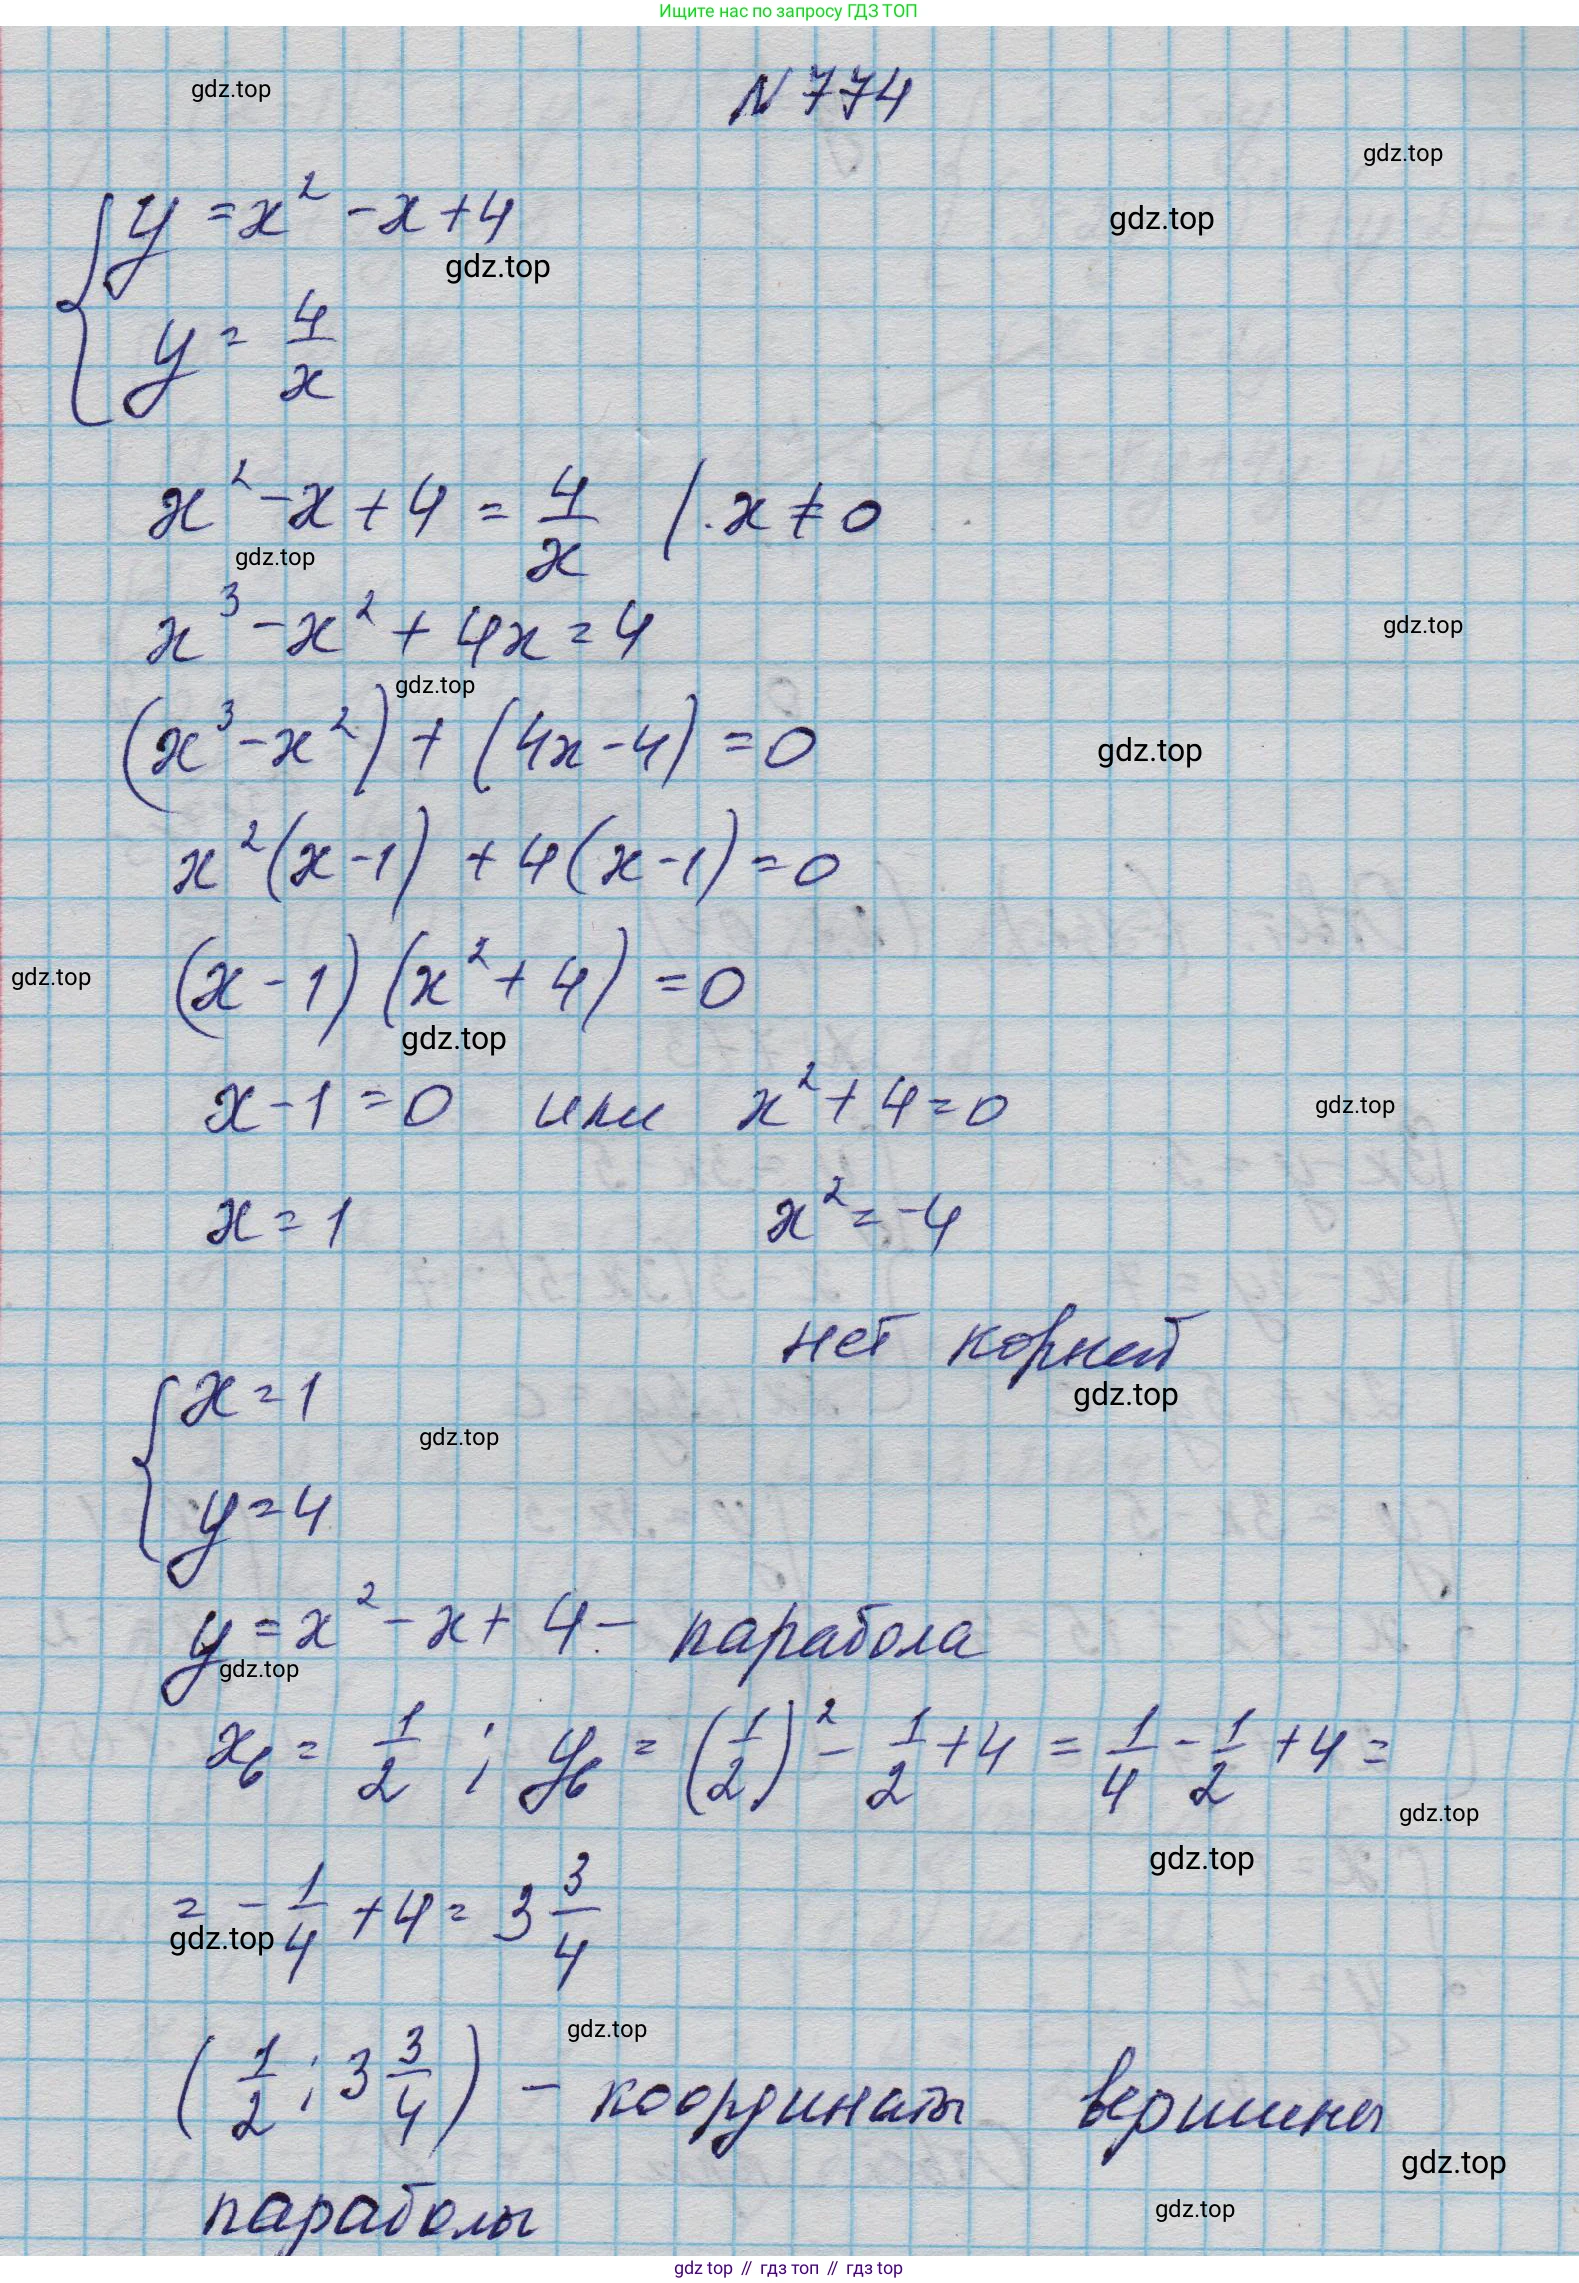 Ищите нас по запросу ГДЗ ТОП
N 774
gdz.top
gdz.top
y = x² - x + 4
gdz.top
gdz.top
y = 4/x
x² - x + 4 = 4/x | · x ≠ 0
gdz.top
x³ - x² + 4x = 4
gdz.top
gdz.top
(x³ - x²) + (4x - 4) = 0
gdz.top
x²(x - 1) + 4(x - 1) = 0
(x - 1)(x² + 4) = 0
gdz.top
gdz.top
x - 1 = 0 или x² + 4 = 0
gdz.top
x = 1 x² = -4
нет корней
gdz.top
{ x = 1
gdz.top
y = 4
y = x² - x + 4 - парабола
gdz.top
xв = 1/2 ; yв = (1/2)² - 1/2 + 4 = 1/4 - 1/2 + 4 =
gdz.top
gdz.top
= - 1/4 + 4 = 3 3/4
gdz.top
gdz.top
(1/2 ; 3 3/4) - координаты вершины
gdz.top
параболы
gdz.top
gdz top // гдз топ // гдз top